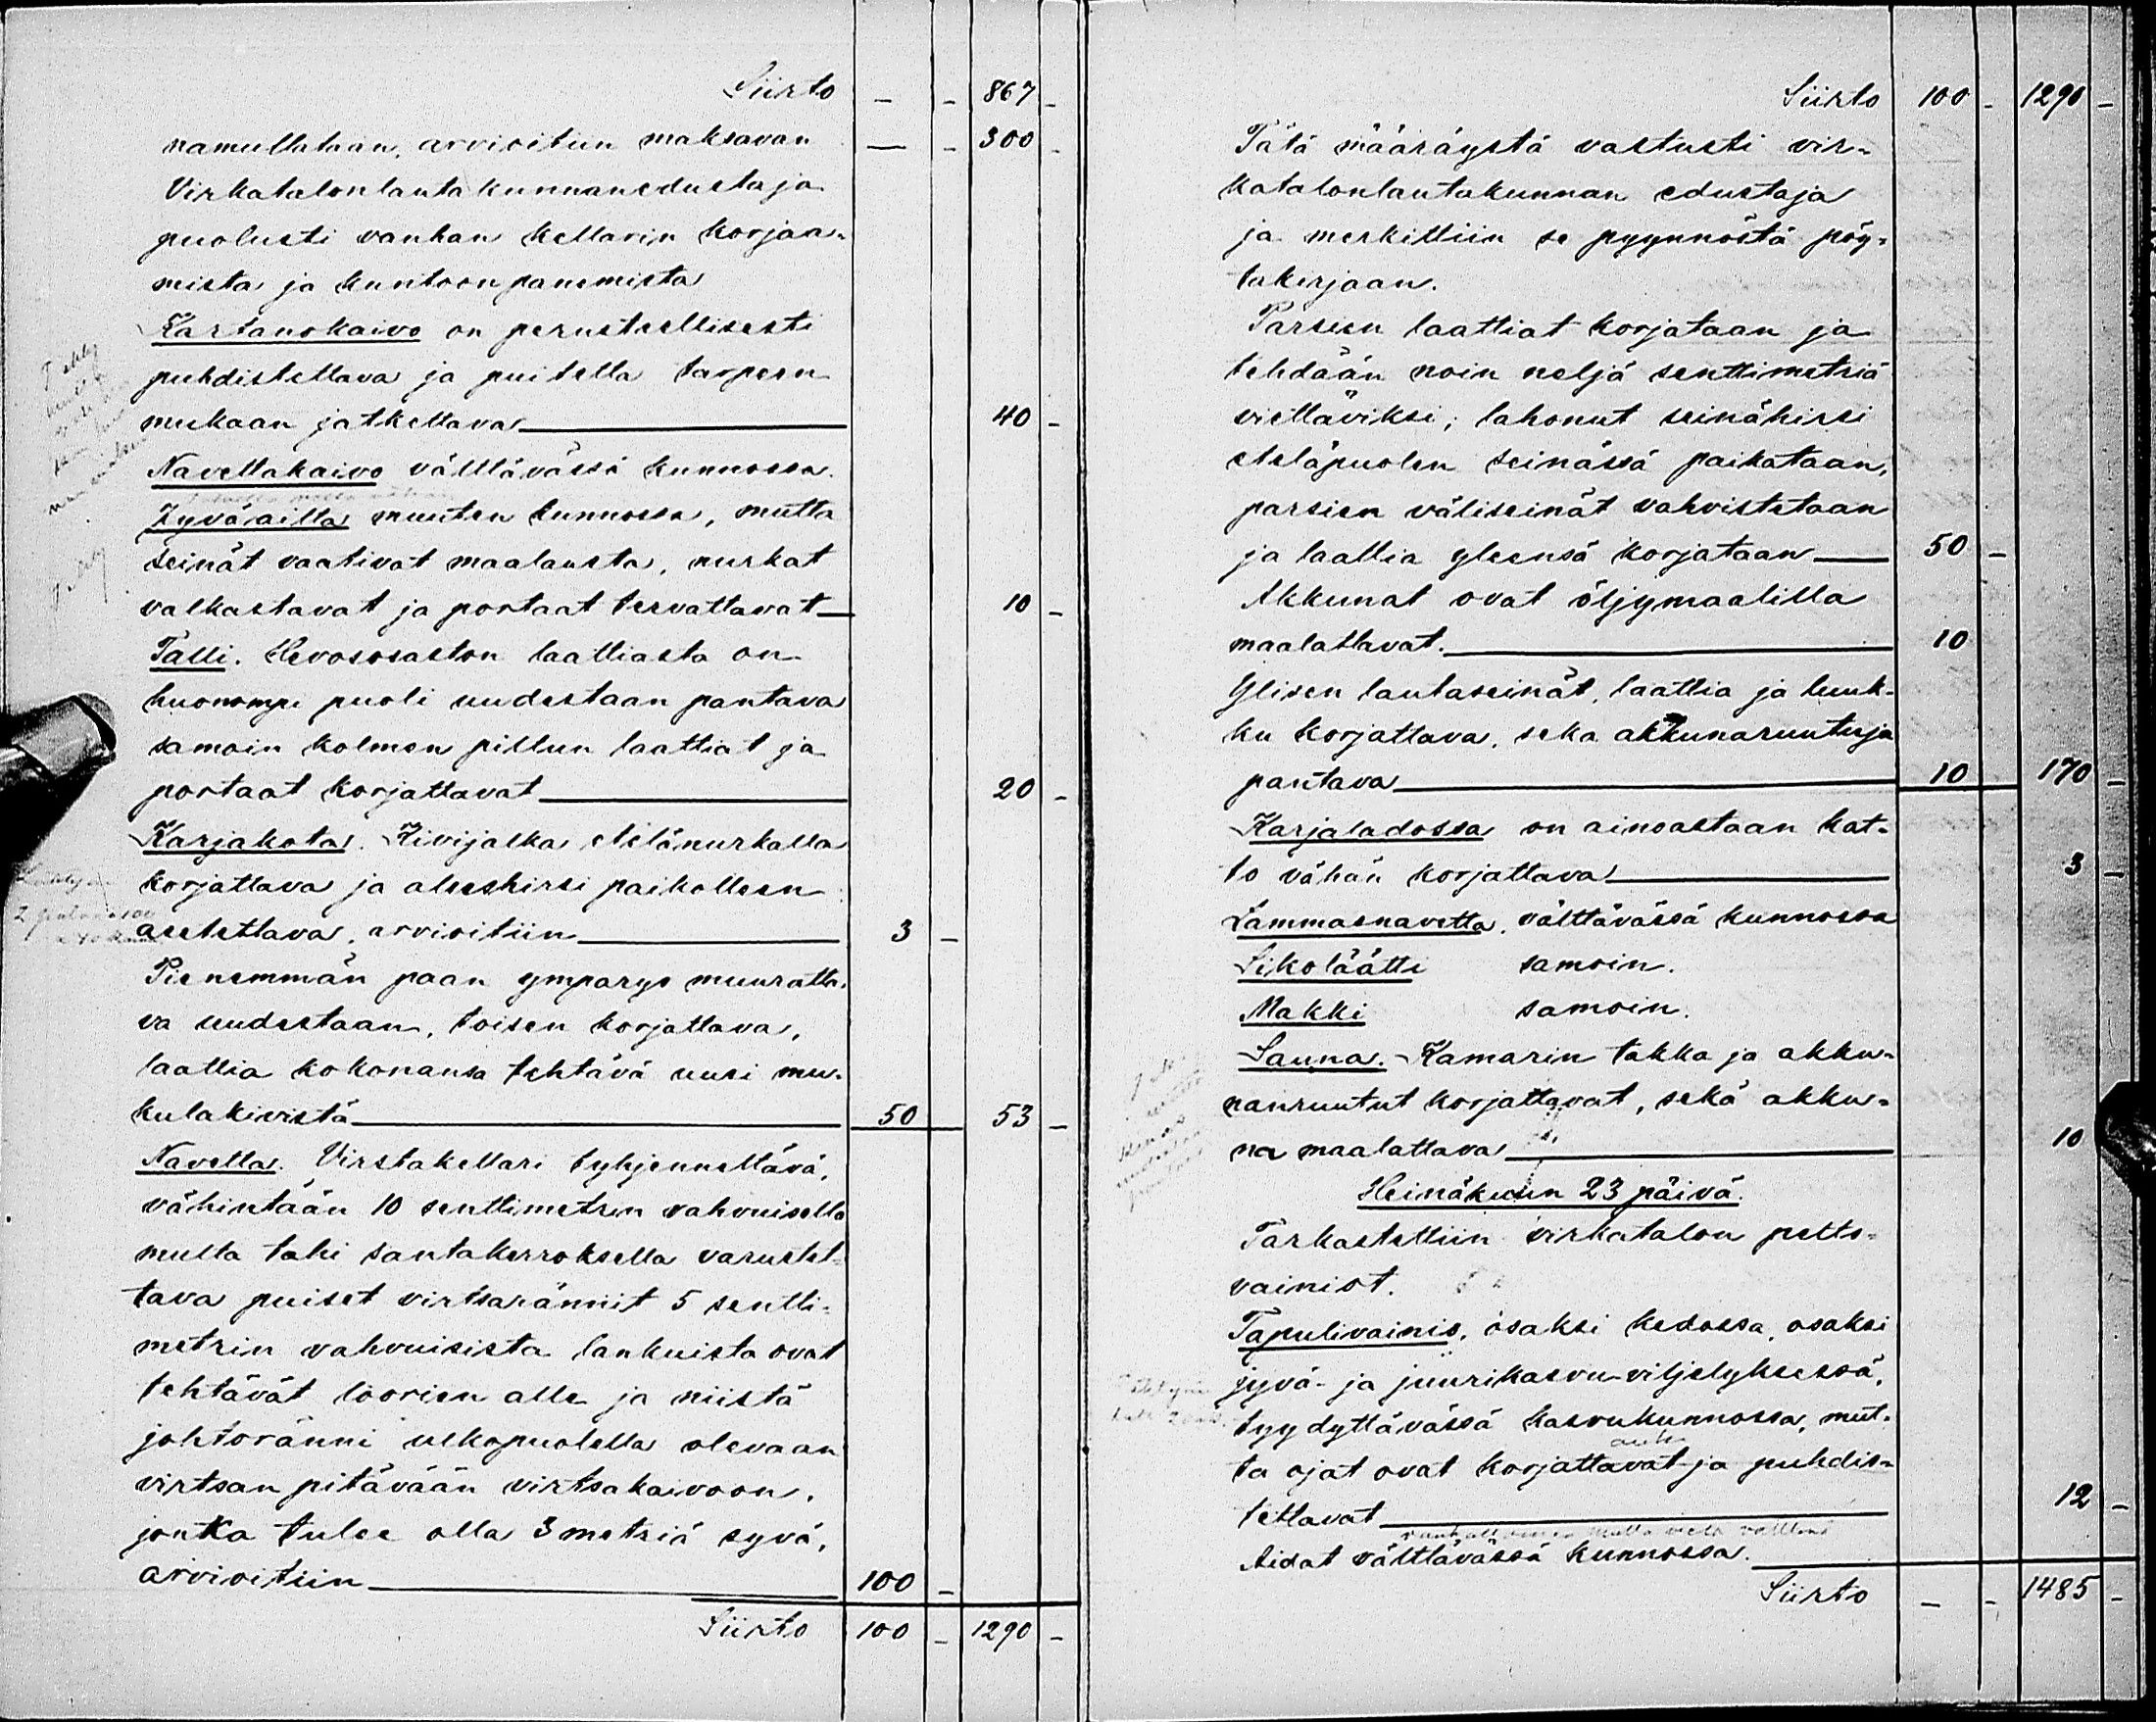 Siirto — - 867 -
namullataan, arvioitiin maksavan — - 300 -
Virkatalonlautakunnan edustaja
puolusti vanhan kellarin korjaa-
mista ja kuntoonpanemista
Kartanokaivo on perusteellisesti
puhdistettava ja puitella tarpeen
mukaan jatkettava 40 -
Navettakaivo välttävässä kunnossa.
Jyväaitta muuten kunnossa, mutta
seinät vaativat maalausta, nurkat
valkastavat ja portaat tervattavat 10 -
Talli. Hevososaston laattiasta on
huonompi puoli uudestaan pantava
samoin kolmen pillun laattiat ja
portaat korjattavat 20 -
Karjakota. Kivijalka etelänurkalla
korjattava ja aleshirsi paikolleen
asetettava, arvioitiin 3 -
Pienemmän paan ymparys muuratta-
va uudestaan, toisen korjattava,
laattia kokonansa tehtävä uusi mu-
kulakivistä 50 53 -
Navetta. Virstakellari tyhjennettävä,
vähintään 10 senttimetrin vahvuisella
multa tahi santakerroksella varustet-
tava puiset virtsarännit 5 sentti-
metrin vahvuisista lankuista ovat
tehtävät loorien alle ja niistä
johtoränni ulkopuolella olevaan
virtsan pitävään virtsakaivoon,
jonka tulee olla 3 metriä syvä,
arvioitiin 100 -
Siirto 100 - 1290 -
Siirto 100 - 1290 -
Tätä määräystä vastusti vir-
katalonlautakunnan edustaja
ja merkittiin se pyynnöstä pöy-
takirjaan.
Parsien laattiat korjataan ja
tehdään noin neljä senttimetriä
viettäviksi; lahonut seinähirsi
eteläpuolen seinässä paikataan,
parsien väliseinät vahvistetaan
ja laattia yleensä korjataan 50 -
Akkunat ovat öljymaalilla
maalattavat. 10
Ylisen lautaseinät, laattia ja luuk-
ku korjattava, seka akkunaruutuja
pantava 10 170 -
Karjaladossa on ainoastaan kat-
to vähän korjattava 3 -
Lammasnavetta, välttävässä kunnossa
Sikoläätti samoin.
Makki samoin.
Sauna. Kamarin takka ja akku-
nanruutut korjattavat, sekä akku-
na maalattava 10
Heinäkuun 23 päivä.
Tarkastettiin virkatalon pelto-
vainiot.
Tapulivainio, osaksi kedossa, osaksi
jyvä- ja juurikasvu-viljelyksessä,
tyydyttävässä kasvukunnossa, mut-
ta ojat ovat korjattavat ja puhdis-
tettavat 12 -
Aidat välttävässä kunnossa.
Siirto — - 1485 -